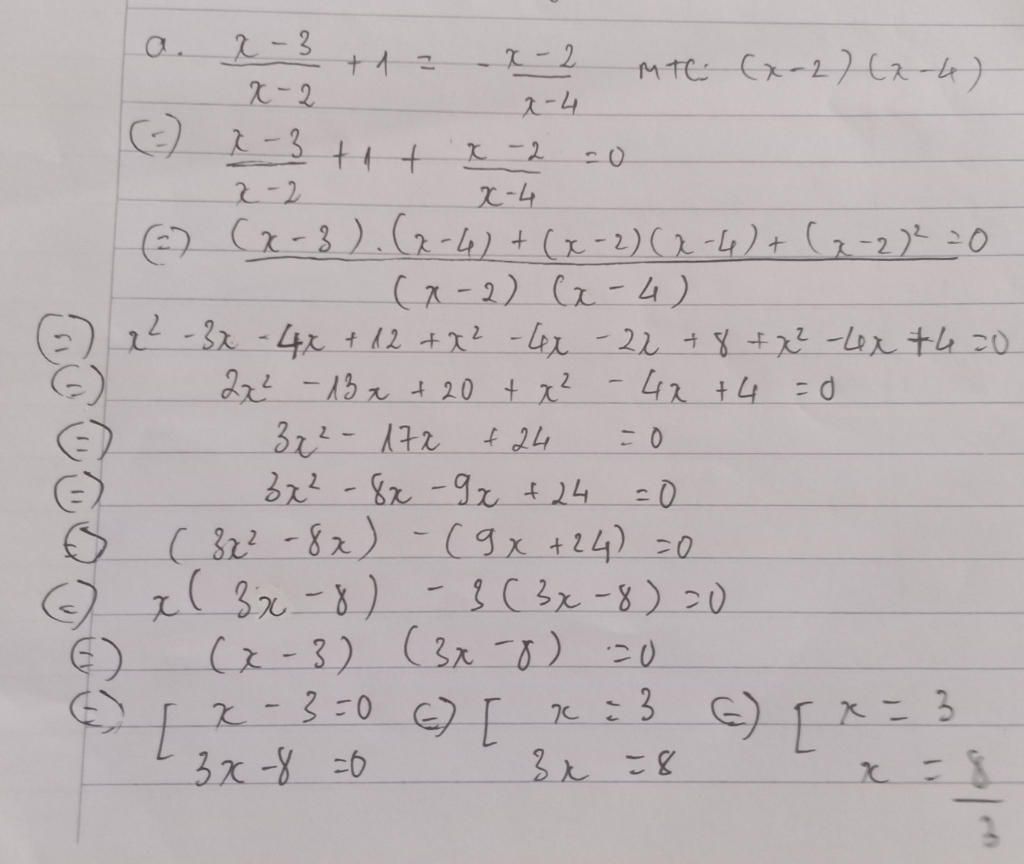 a. (x-3)/(x-2) + 1 = - (x-2)/(x-4) MTC: (x-2)(x-4)
(=) (x-3)/(x-2) + 1 + (x-2)/(x-4) = 0
(=) ((x-3).(x-4) + (x-2)(x-4) + (x-2)²)/((x-2)(x-4)) = 0
(=) x² - 3x - 4x + 12 + x² - 4x - 2x + 8 + x² - 4x + 4 = 0
(=) 2x² - 13x + 20 + x² - 4x + 4 = 0
(=) 3x² - 17x + 24 = 0
(=) 3x² - 8x - 9x + 24 = 0
(=) (3x² - 8x) - (9x + 24) = 0
(=) x(3x - 8) - 3(3x - 8) = 0
(=) (x - 3)(3x - 8) = 0
(=) [ x - 3 = 0 (=) [ x = 3 (=) [ x = 3
3x - 8 = 0 3x = 8 x = 8/3